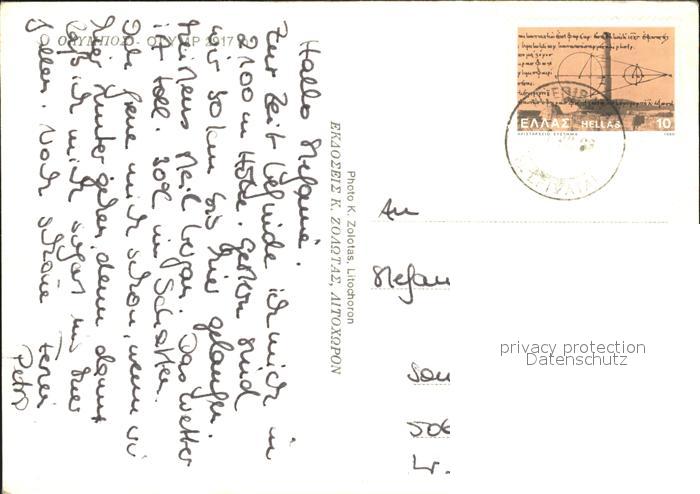 ΟΛΥΜΠΟΣ - OLYMP 2917
Hallo Stefanie.
Zur Zeit befinde ich mich in
2100 m Höhe. Gestern sind
wir 50 km bis hier gelaufen.
meistens steil bergan. Das Wetter
ist toll. 30C im Schatten.
Ich freue mich schon, wenn wir
runter gehen, denn dann
ich mich
Noch schöne Ferien
Petra
Photo K. Zolotas, Litochoron
ΕΚΔΟΣΕΙΣ Κ. ΖΟΛΩΤΑΣ, ΛΙΤΟΧΩΡΟΝ
ΕΛΛΑΣ HELLAS 10
ΑΡΙΣΤΑΡΧΕΙΟ ΣΥΣΤΗΜΑ 1980
An
Stefan
506
privacy protection
Datenschutz